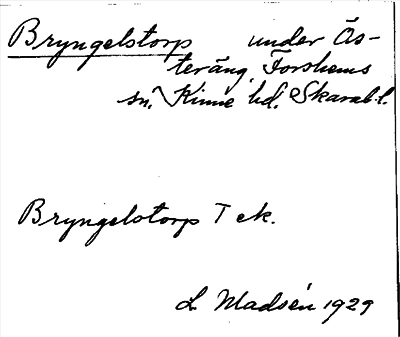 Bryngelstorp under Ös-
teräng, Forshems
sn, Kinne hd, Skarab.l.
Bryngelstorp T ek.
L Madsén 1929